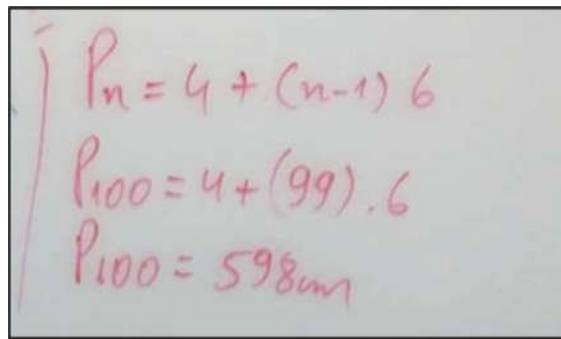 Pn = 4 + (n-1) 6
P100 = 4 + (99) . 6
P100 = 598cm